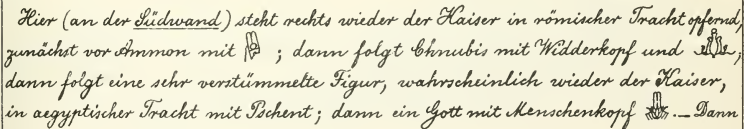 Hier (an der Südwand) steht rechts wieder der Kaiser in römischer Tracht opfernd,
zunächst vor Ammon mit ; dann folgt Chnubis mit Widderkopf und ;
dann folgt eine sehr verstümmelte Figur, wahrscheinlich wieder der Kaiser,
in aegyptischer Tracht mit Pschent; dann ein Gott mit Menschenkopf . — Dann